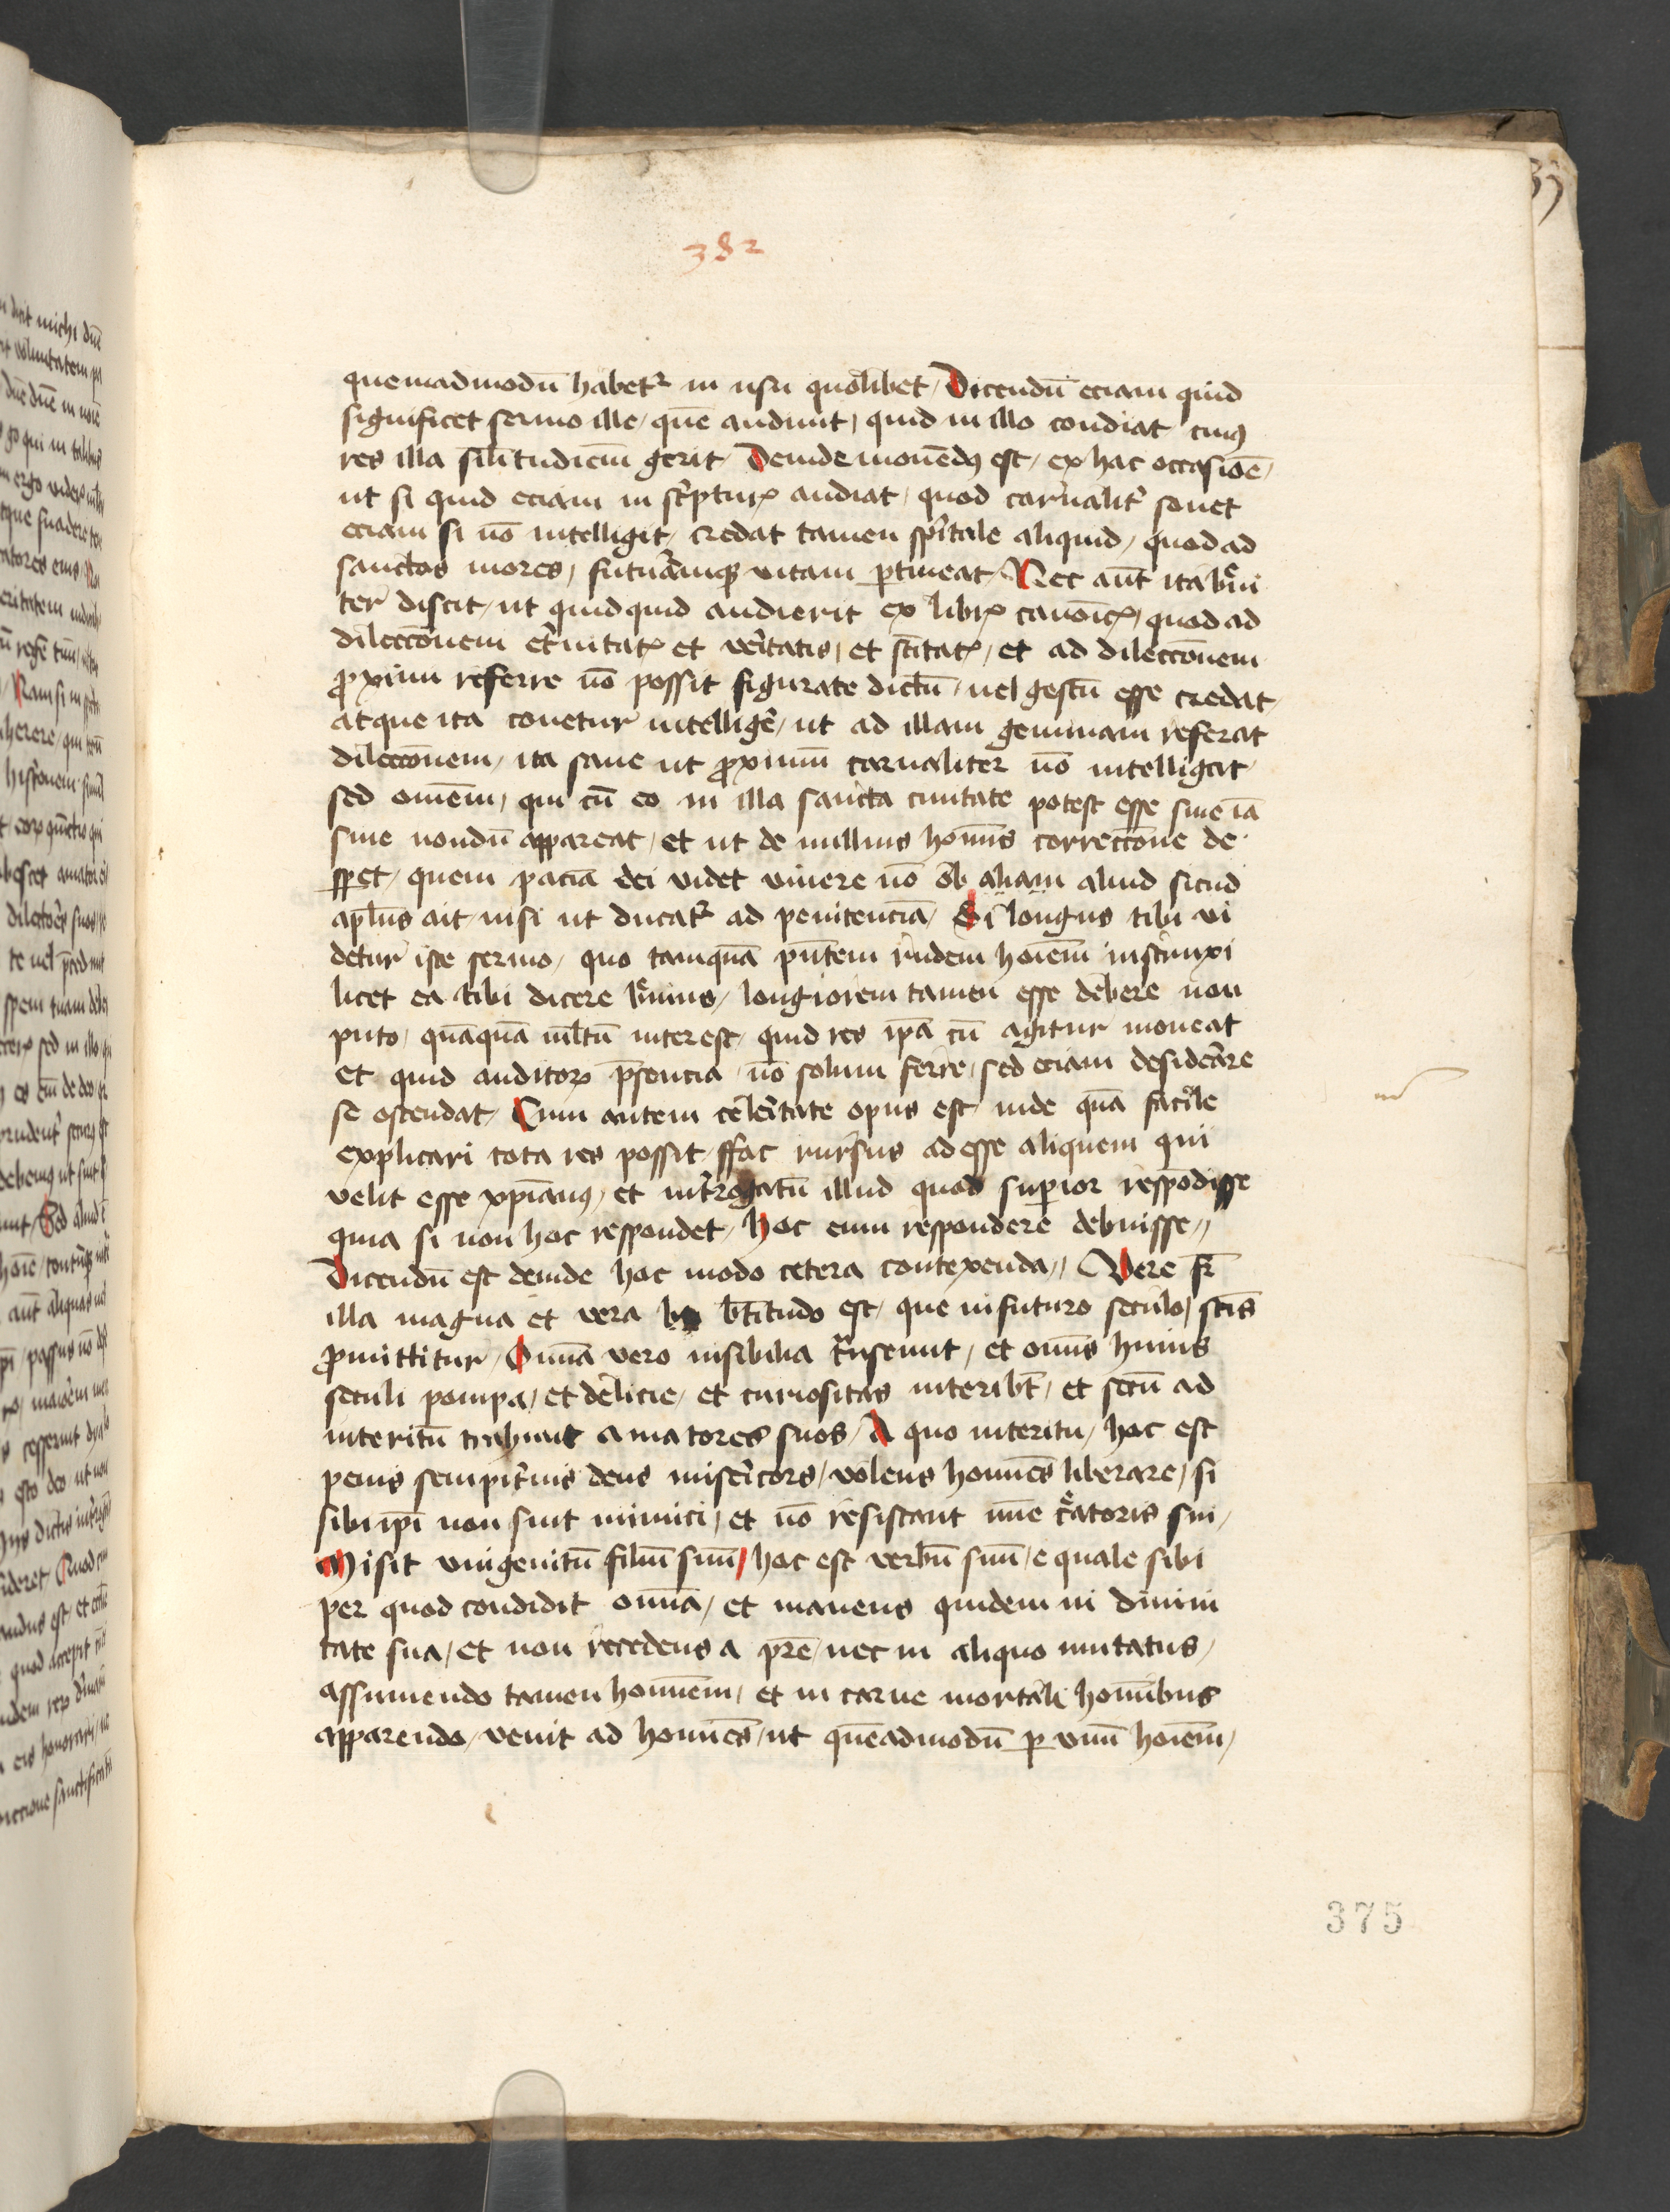 382
quemadmodū habetᷣ in usu quolibet / Dicendū eciam quid
significet sermo ille / quē audiuit / quid in illo condiat cuiꝰ
res illa silitudiem̄ gerit / Deinde monendꝰ est / ex hac occasiōe /
ut si quid eciam in scͥpturꝭ audiat / quod carnalitͬ sonet
eciam si nō intelligit / credat tamen spītale aliquid / quod ad
sanctos mores / futuramqꝫ vitam ꝑtineat / Nec aūt ita brͤui
ter discit / ut quidquid audierit ex librꝭ canoīcꝭ / quod ad
dileccōnem etͬnitatꝭ et veͬitatis / et scītatꝭ / et ad dileccōnem
ꝓximi referre nō possit figurate dictū / uel gestū esse credat /
atque ita conetur intelligeͬ / ut ad illam geminam referat
dileccōnem / ita sane ut ꝓximū carnaliter nō intelligat /
sed omēm / qui cū eo in illa sancta ciuitate potest esse siue iā
siue nondū appareat / et ut de nullius homīs correccōne de
sꝑet / quem paciā dei videt viuere nō ob aliam aliud sicud
aplūs ait / nisi ut ducatᷣ ad penitenciā / Si longus tibi vi
detur iste sermo / quo tamquā pn̄tem rudem hoiēm instruxi
licet ea tibi dicere brͤuius / longiorem tamen esse debere non
puto / quāquā ml̄tū interest / quid res ip̄a cū agitur moneat
et quid auditoꝝ p̄sencia / nō solum ferre / sed eciam desideͬare
se ostendat / Cum autem celeͬitate opus est / uide quā facile
explicari tota res possit / ffac rursus adesse aliquem qui
velit esse xp̄ianꝰ / et intͬrogatū illud quod superior respōdisse
quia si non hoc respondet / hoc eum respondere debuisse //
Dicendū est deinde hoc modo cetera contexenda // Vere fr̄
illa magna et vera bt̄itudo est / que in futuro seculo / scīs
ꝓmittitur / Omīa vero uisibilia trͣnseunt / et omīs huius
seculi pompa / et delicie / et curiositas interibt̄ / et secū ad
interitū trahunt amatores suos / A quo interitu / hoc est
penis sempitͬnis deus misericors / volens homīes liberare / si
sibi ip̄i non sint inimici / et nō resistant mīe creͣatoris sui /
Misit vnigenitū filiū suū / hoc est verbū suū / e quale sibi
per quod condidit omīa / et manens quidem in diuini
tate sua / et non recedens a pr̄e / nec in aliquo mutatus /
assumendo tamen homīem / et in carne mortali homībus
apparendo / venit ad homīes / ut quēadmodū ꝑ vnū hoiēm /
375